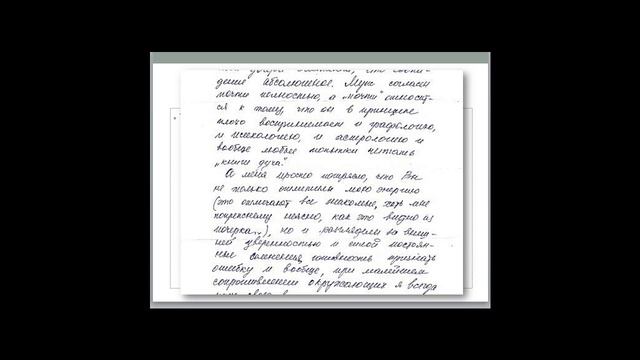 дение абсолютное. Муж согласен
почти полностью, а "почти" относит-
ся к тому, что он в принципе
плохо воспринимает и графологию,
и психологию, и астрологию и
вообще любые попытки читать
"книги духа."
А меня просто потрясло, что Вы
не только отметили мою энергию
(это отмечают все знакомые, хоть мне
по-прежнему неясно, как это видно из
почерка...), но и разглядели за внеш-
ней уверенностью и силой постоян-
ные сомнения, готовность признать
ошибку и вообще, при малейшем
сопротивлении окружающих я всегда